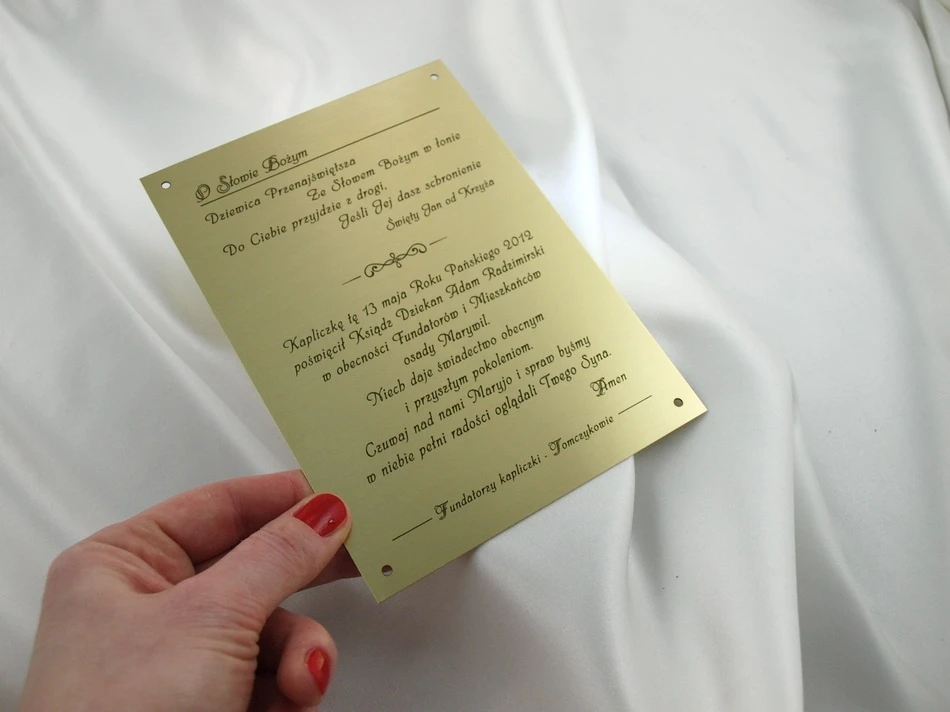 O Słowie Bożym
Dziewica Przenajświętsza
Ze Słowem Bożym w łonie
Do Ciebie przyjdzie z drogi,
Jeśli Jej dasz schronienie
Święty Jan od Krzyża
Kapliczkę tę 13 maja Roku Pańskiego 2012
poświęcił Ksiądz Dziekan Adam Radzimirski
w obecności Fundatorów i Mieszkańców
osady Marywil.
Niech daje świadectwo obecnym
i przyszłym pokoleniom.
Czuwaj nad nami Maryjo i spraw byśmy
w niebie pełni radości oglądali Twego Syna.
Amen
Fundatorzy kapliczki - Tomczykowie